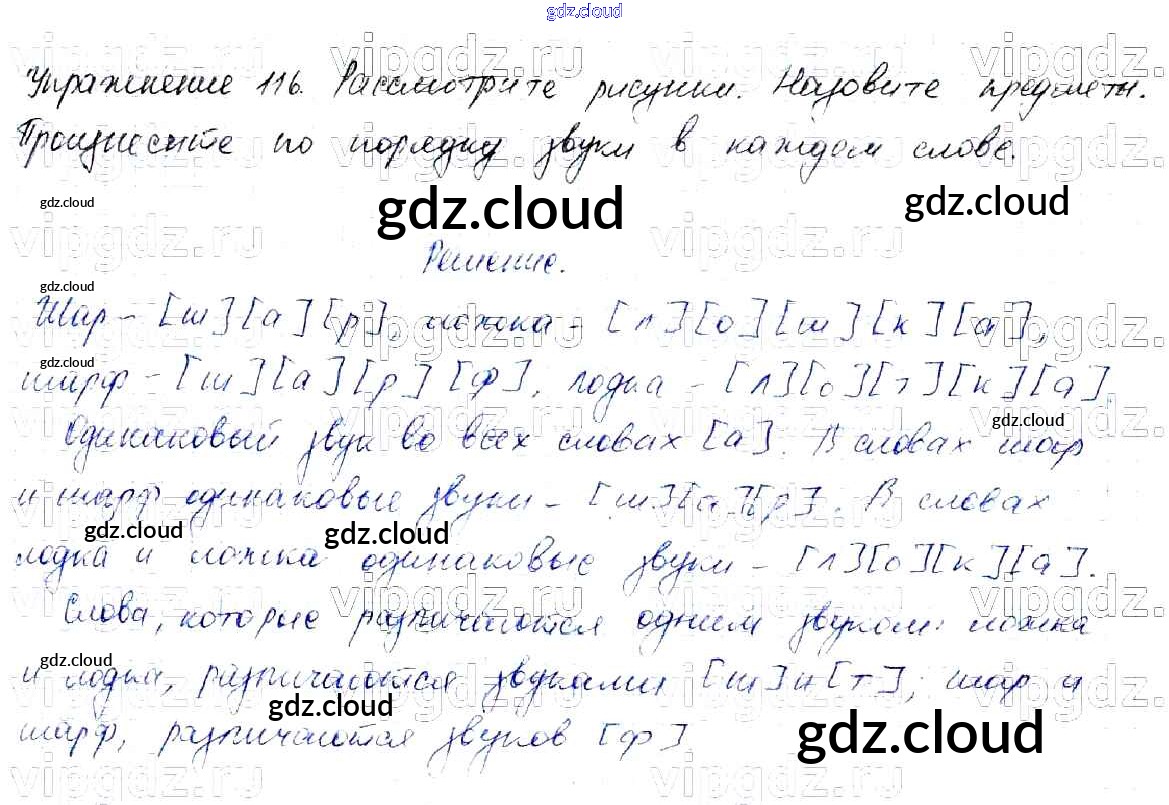 gdz.cloud
Упражнение 116. Рассмотрите рисунки. Назовите предметы.
Произнесите по порядку звуки в каждом слове.
gdz.cloud gdz.cloud gdz.cloud
Решение.
gdz.cloud
Шар - [ш][а][р], ложка - [л][о][ш][к][а],
gdz.cloud
шарф - [ш][а][р][ф], лодка - [л][о][т][к][а].
gdz.cloud
Одинаковый звук во всех словах [а]. В словах шар
и шарф одинаковые звуки - [ш][а][р]. В словах
gdz.cloud gdz.cloud
лодка и ложка одинаковые звуки - [л][о][к][а].
Слова, которые различаются одним звуком: ложка
gdz.cloud
и лодка, различаются звуками [ш] и [т], шар и
gdz.cloud gdz.cloud
шарф, различаются звуков [ф]
vipgdz.ru